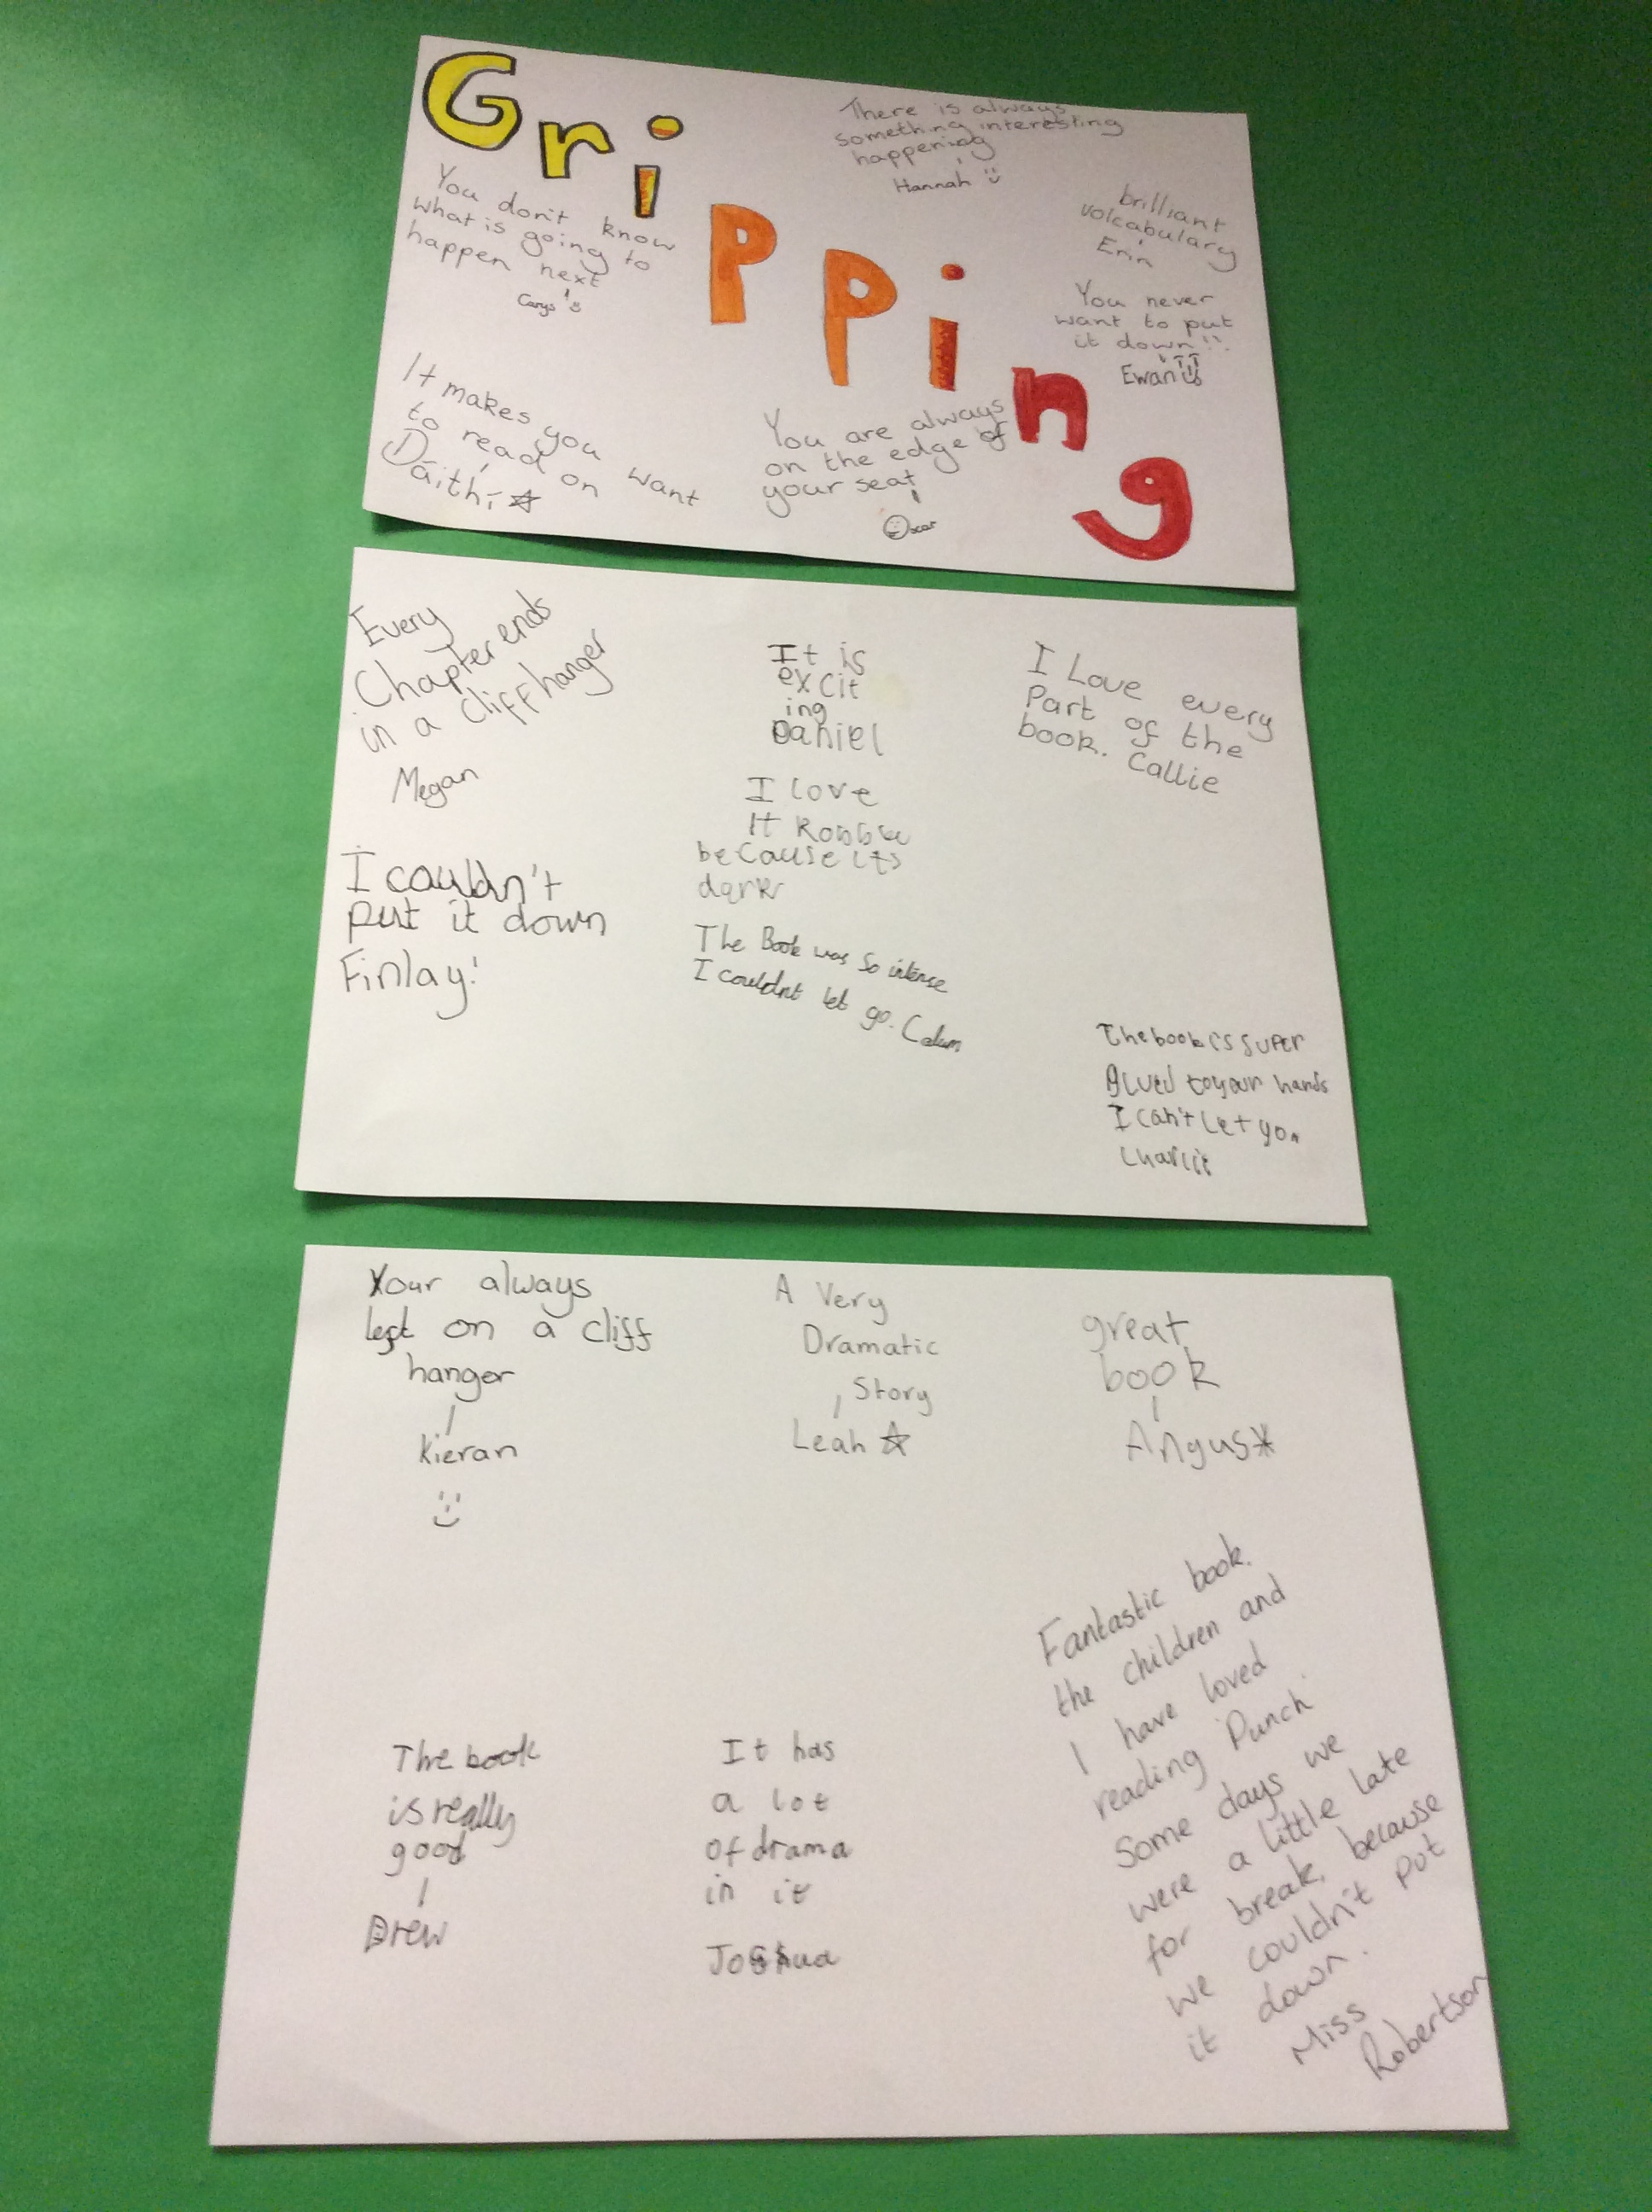 Gripping
There is always
something interesting
happening
Hannah
You don't know
what is going to
happen next
Carys
brilliant
volcabulary
Erin
You never
want to put
it down!!
Ewan
It makes you want
to read on
Dáithí
You are always
on the edge of
your seat
Oscar
Every
Chapter ends
in a cliff hanger
Megan
It is
excit
ing
Daniel
I Love every
Part of the
book. Callie
I love
It Robbie
because its
dark
I couldn't
put it down
Finlay!
The Book was so intense
I couldnt let go. Calum
The book is super
glued to your hands
I can't let you
Charlie
Your always
left on a cliff
hanger
Kieran
A Very
Dramatic
Story
Leah
great
book
Angus
The book
is really
good
Drew
It has
a lot
of drama
in it
Joshua
Fantastic book.
the children and
I have loved
reading 'Punch'.
Some days we
were a little late
for break, because
we couldn't put
it down.
Miss
Robertson